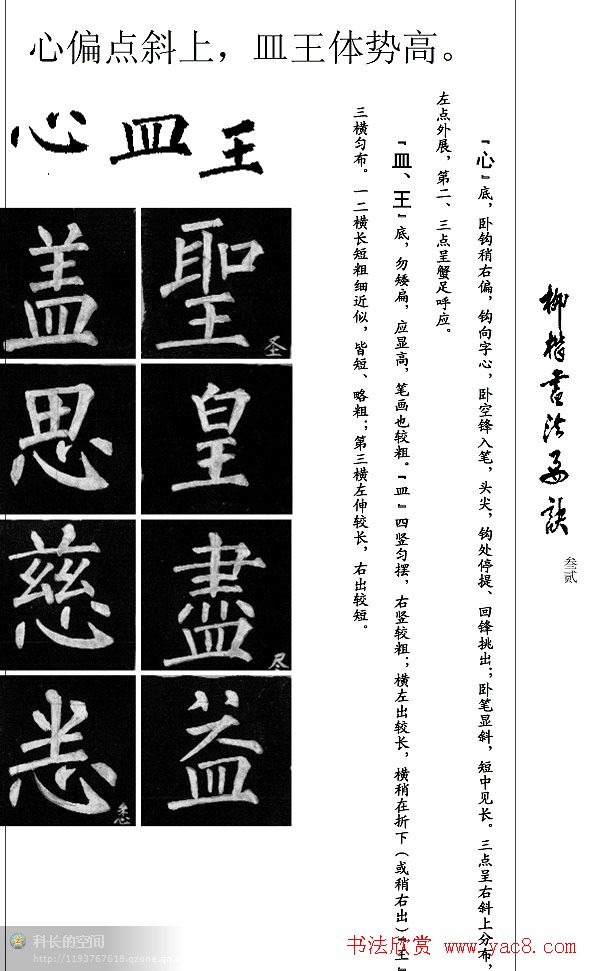 心偏点斜上，皿王体势高。
心 皿 王
『心』底，卧钩稍右偏，钩向字心，卧空锋入笔，头尖，钩处停提、回锋挑出；卧笔显斜，短中见长。三点呈右斜上分布，
左点外展，第二、三点呈蟹足呼应。
『皿、王』底，勿矮扁，应显高，笔画也较粗。『皿』四竖匀摆，右竖较粗；横左出较长，横稍在折下（或稍右出）『王』
三横匀布。一二横长短粗细近似，皆短、略粗；第三横左伸较长，右出较短。
聖 圣
皇
盡 尽
益
盖
思
慈
恙 悉
柳楷书法要诀
叁贰
科长的空间
http://1193767618.qzone.qq.co
书法欣赏 www.yac8.com